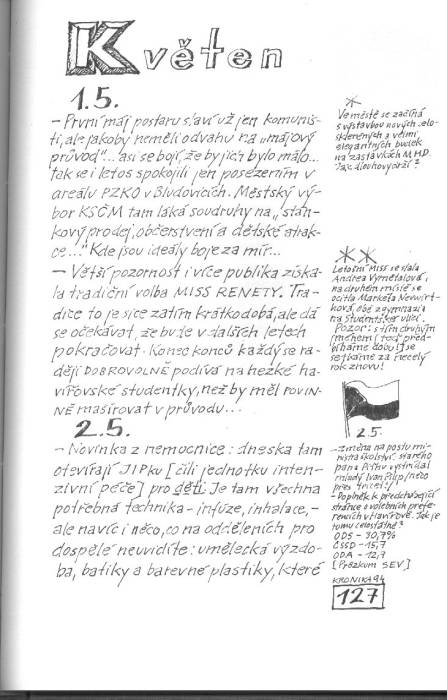 Květen
1.5.
- První máj postaru slaví už jen komunis-
ti, ale jakoby neměli odvahu na „májový
průvod"... asi se bojí, že by jich bylo málo...
tak se i letos spokojili jen posezením v
areálu PZKO v Bludovicích. Městský vý-
bor KSČM tam láká soudruhy na „stán-
kový prodej, občerstvení a dětské atrak-
ce..." Kde jsou ideály boje za mír...
- Větší pozornost i více publika získa-
la tradiční volba MISS RENETY. Tra-
dice to je sice zatím krátkodobá, ale dá
se očekávat, že bude v dalších letech
pokračovat. Konec konců každý se ra-
ději DOBROVOLNĚ podívá na hezké ha-
vířovské studentky, než by měl POVIN-
NĚ mašírovat v průvodu...
2.5.
- Novinka z nemocnice: dneska tam
otevírají JIPku [čili jednotku inten-
zivní péče] pro děti. Je tam všechna
potřebná technika - infúze, inhalace, -
ale navíc i něco, co na odděleních pro
dospělé neuvidíte: umělecká výzdo-
ba, batiky a barevné plastiky, které
*
Ve městě se začíná
s výstavbou nových, celo-
skleněných a velmi
elegantních budek
na zastávkách MHD.
Jak dlouho vydrží?
**
Letošní MISS se stala
Andrea Vymětalová,
na druhém místě se
ocitla Markéta
obě z gymnázia
na Studentské ulici.
Pozor: s tím druhým
jménem [teď před-
bíháme dobu!] se
setkáme za necelý
rok znovu!
2.5.
- změna na postu mi-
nistra školství: starého
pana Piťhu vystřídal
mladý Ivan Pilip [nebo
přes třicet!]
- Doplněk k předcházející
stránce o volebních prefe-
rencích v Havířově. Jak je
tomu celostátně?
ODS - 30,7%
ČSSD - 15,7
ODA - 12,7
[Průzkum SEV]
KRONIKA 94
127